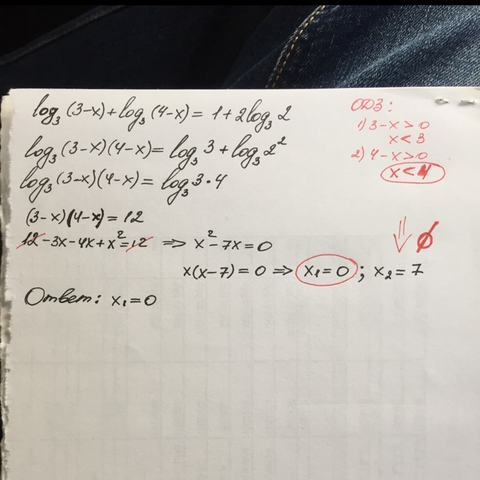 log₃(3-x)+log₃(4-x)=1+2log₃2
log₃(3-x)(4-x)=log₃3+log₃2²
log₃(3-x)(4-x)=log₃3·4
(3-x)(4-x)=12
12-3x-4x+x²=12 ⇒ x²-7x=0
x(x-7)=0 ⇒ x₁=0; x₂=7
Ответ: x₁=0
ОДЗ:
1) 3-x>0
x<3
2) 4-x>0
x<4
⇓ ∅